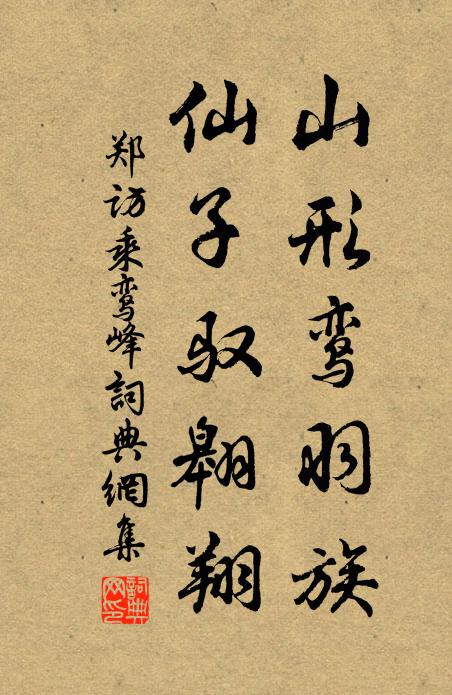 山形鸾羽族
仙子驭翱翔
郑访乘鸾峰詞典網集
詞典網印